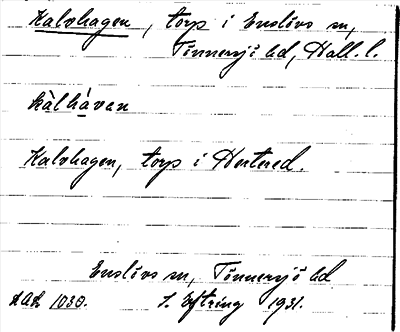 Kalvhagen, torp i Enslövs sn,
Tönnersjö hd, Hall. l.
kàlhávan
Kalvhagen, torp i Hertered.
Enslövs sn, Tönnersjö hd
1030. 1931.